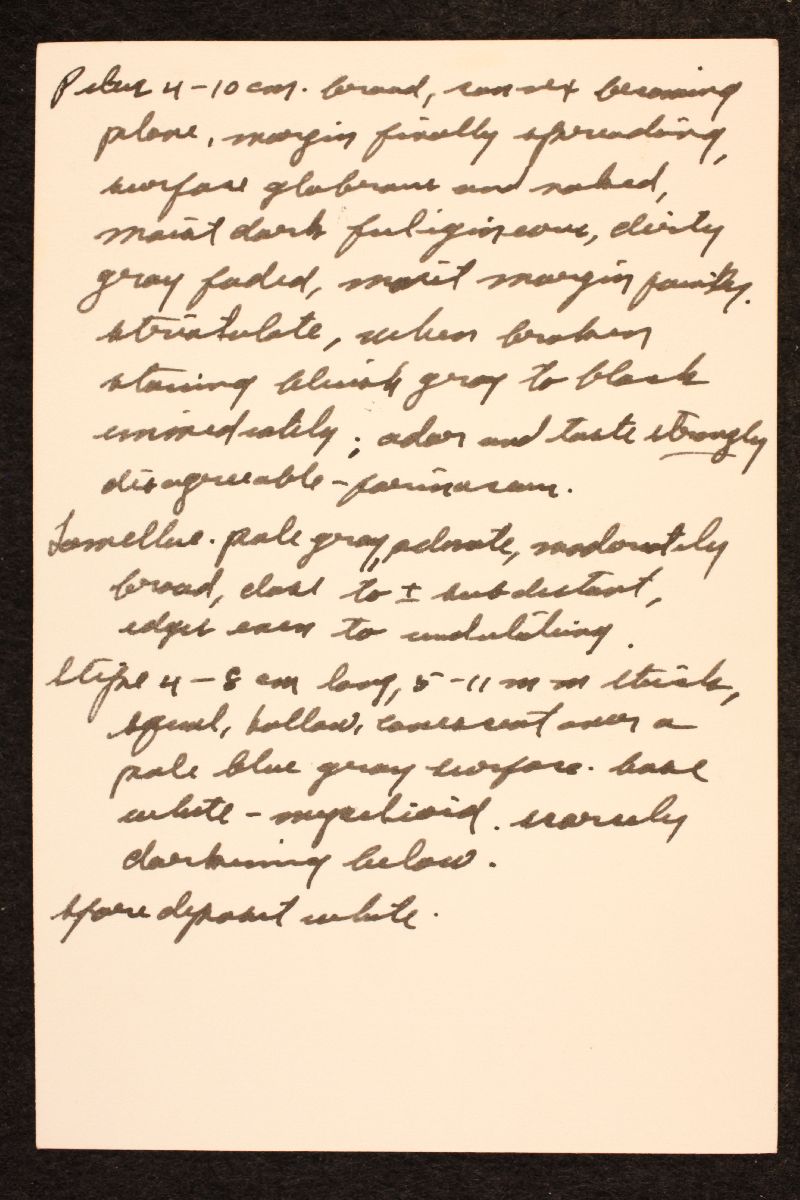 Pileus 4-10 cm. broad, convex becoming
plane, margin finally spreading,
surface glabrous and naked,
moist dark fuligineous, dirty
gray faded, moist margin faintly
striatulate, when broken
staining bluish gray to black
immediately; odor and taste strongly
disagreeable - farinaceous.
Lamellae. pale gray, adnate, moderately
broad, close to ± subdistant,
edges even to undulating.
Stipe 4-8 cm long, 5-11 mm thick,
equal, hollow, canescent over a
pale blue gray surface. base
white - mycelioid. scarcely
darkening below.
spore deposit white.